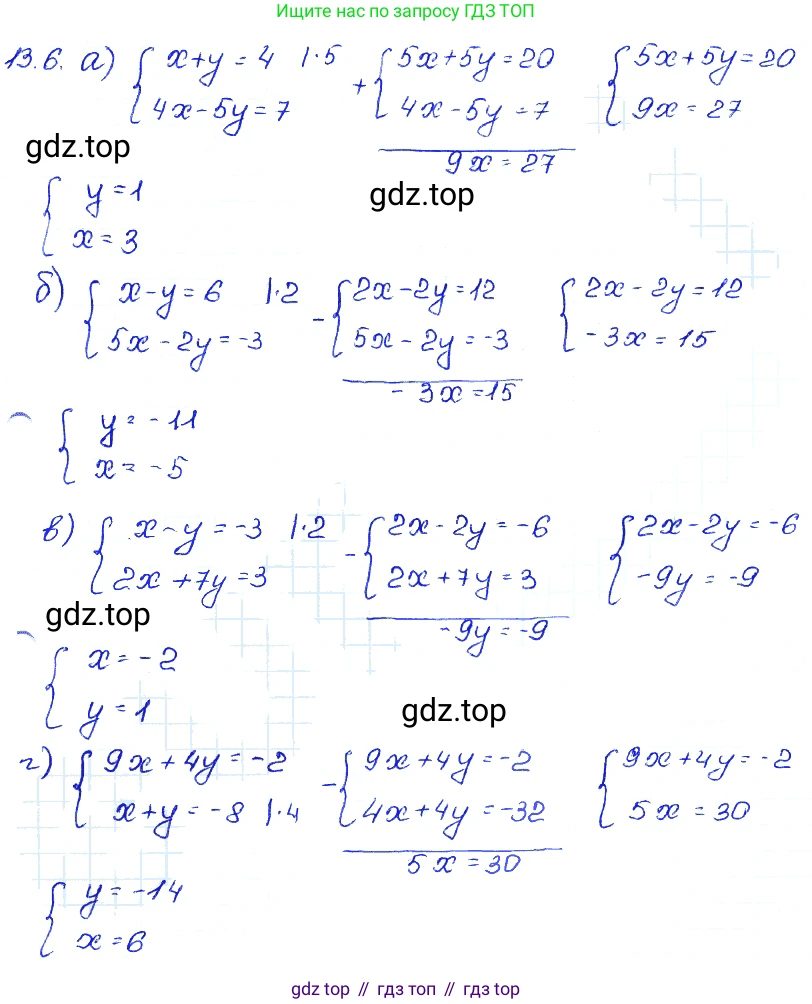 Ищите нас по запросу ГДЗ ТОП
13.6. а) { x+y=4 |·5 + { 5x+5y=20 { 5x+5y=20
4x-5y=7 4x-5y=7 9x=27
9x=27
gdz.top
gdz.top
{ y=1
x=3
б) { x-y=6 |·2 - { 2x-2y=12 { 2x-2y=12
5x-2y=-3 5x-2y=-3 -3x=15
-3x=15
{ y=-11
x=-5
в) { x-y=-3 |·2 - { 2x-2y=-6 { 2x-2y=-6
2x+7y=3 2x+7y=3 -9y=-9
gdz.top -9y=-9
{ x=-2
y=1
gdz.top
г) { 9x+4y=-2 - { 9x+4y=-2 { 9x+4y=-2
x+y=-8 |·4 4x+4y=-32 5x=30
5x=30
{ y=-14
x=6
gdz top // гдз топ // гдз top